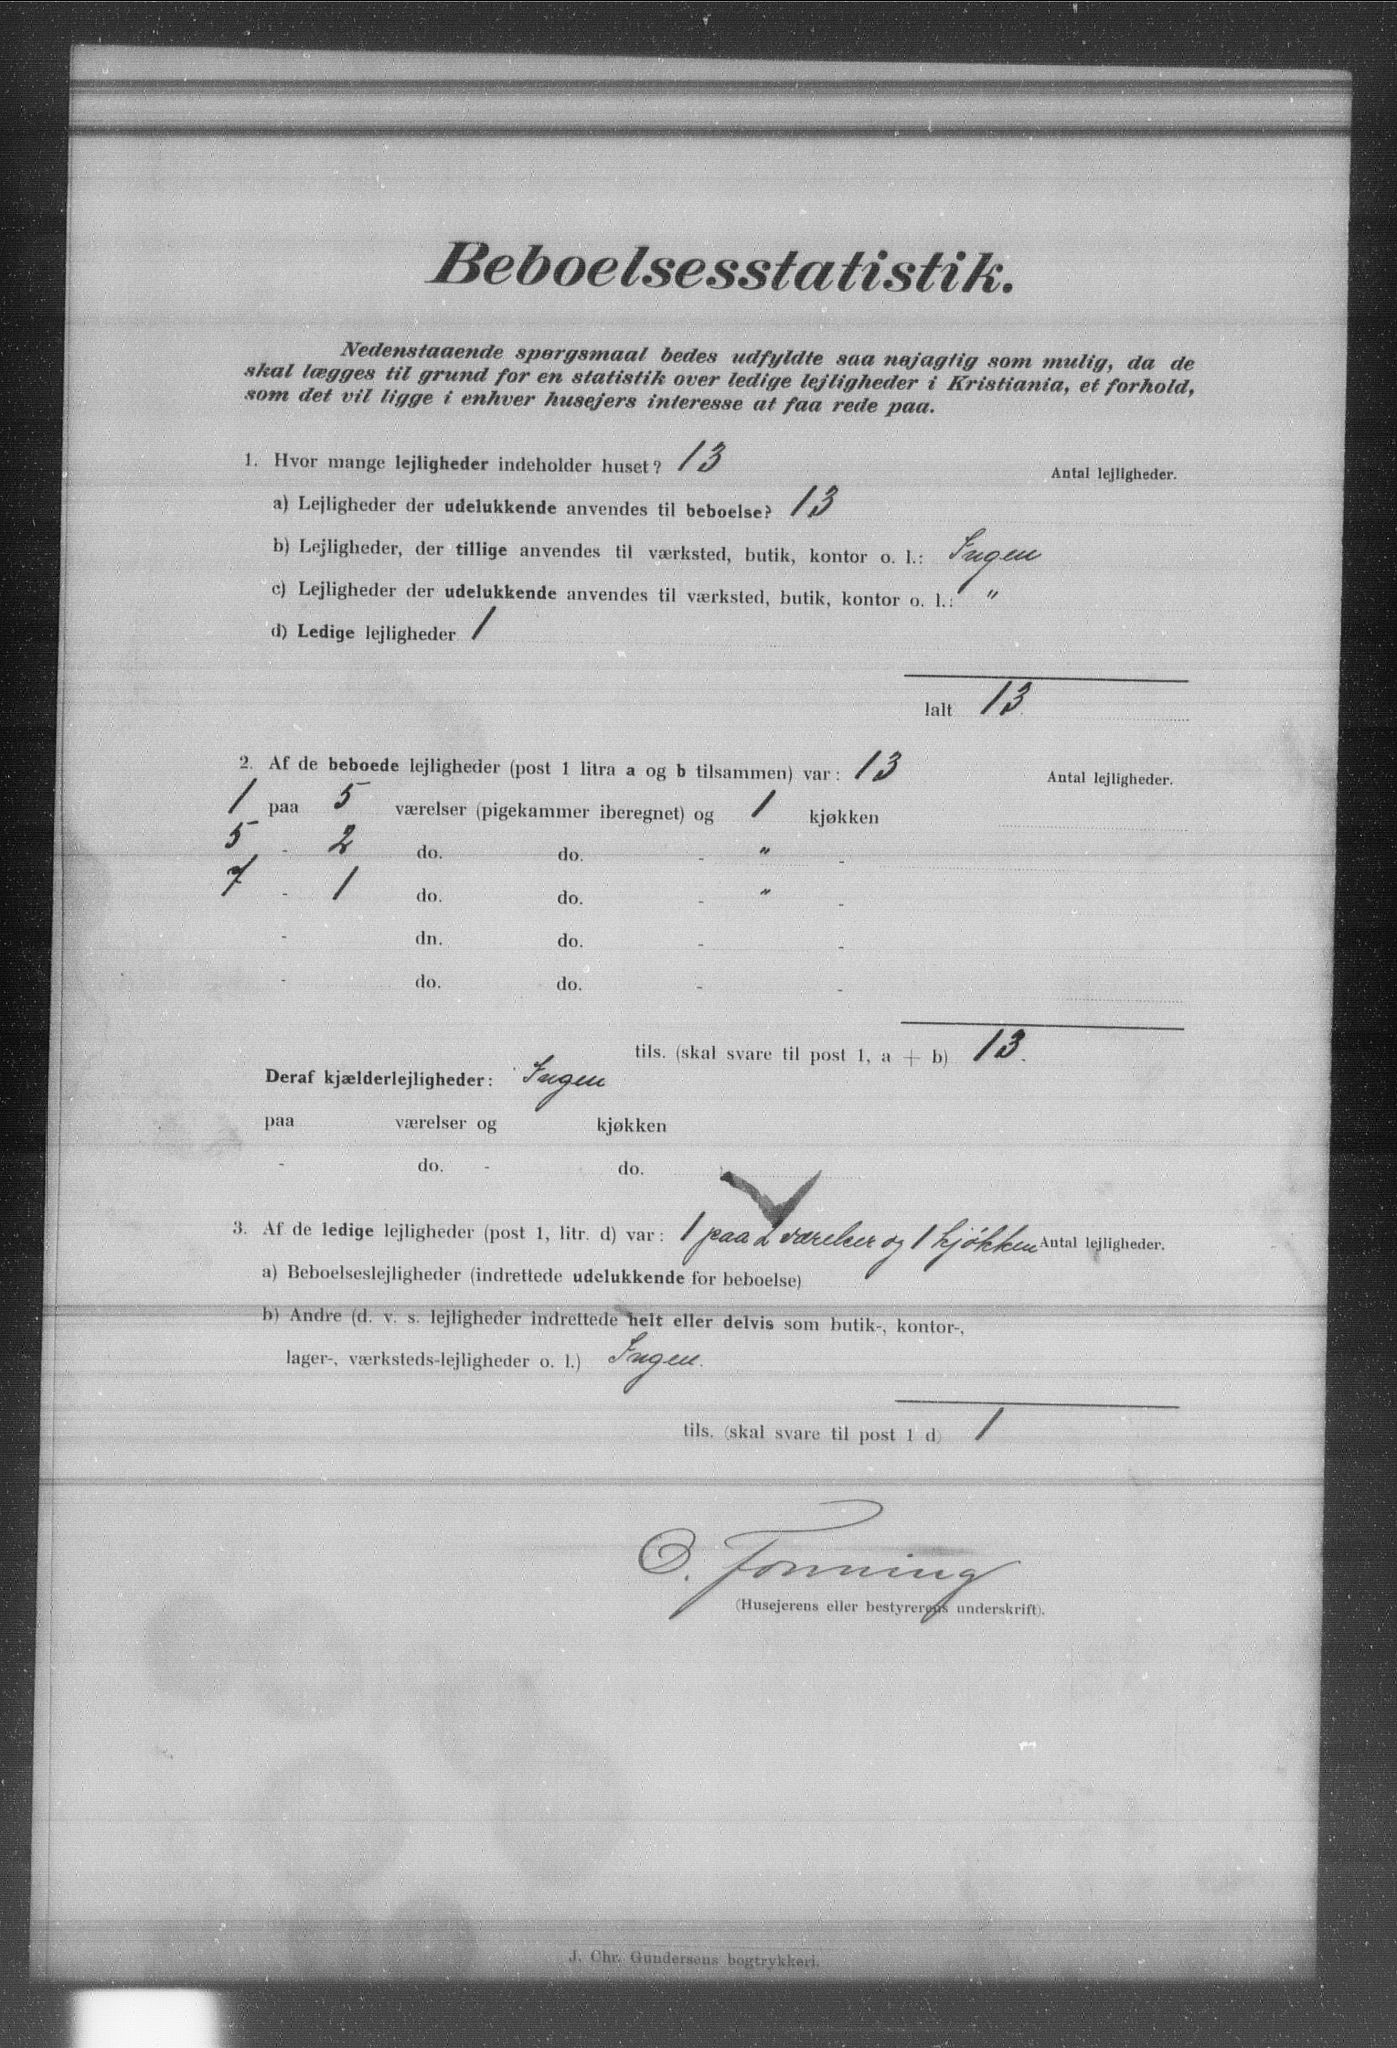 Beboelsesstatistik.
Nedenstaaende spørgsmaal bedes udfyldte saa nøjagtig som mulig, da de
skal lægges til grund for en statistik over ledige lejligheder i Kristiania, et forhold,
som det vil ligge i enhver husejers interesse at faa rede paa.
1. Hvor mange lejligheder indeholder huset? 13 Antal lejligheder.
a) Lejligheder der udelukkende anvendes til beboelse? 13
b) Lejligheder, der tillige anvendes til værksted, butik, kontor o. l.: Ingen
c) Lejligheder der udelukkende anvendes til værksted, butik, kontor o. l.: "
d) Ledige lejligheder 1
Ialt 13
2. Af de beboede lejligheder (post 1 litra a og b tilsammen) var: 13 Antal lejligheder.
1 paa 5 værelser (pigekammer iberegnet) og 1 kjøkken
5 - 2 do. do. - " -
7 - 1 do. do. - " -
- dn. do. - -
- do. do. - -
tils. (skal svare til post 1, a + b) 13.
Deraf kjælderlejligheder: Ingen
paa værelser og kjøkken
- do. - do.
3. Af de ledige lejligheder (post 1, litr. d) var: 1 paa 2 værelser og 1 kjøkken Antal lejligheder.
a) Beboelseslejligheder (indrettede udelukkende for beboelse)
b) Andre (d. v. s. lejligheder indrettede helt eller delvis som butik-, kontor-,
lager-, værksteds-lejligheder o. l.) Ingen.
tils. (skal svare til post 1 d) 1
O. Fonning
(Husejerens eller bestyrerens underskrift).
J. Chr. Gundersens bogtrykkeri.